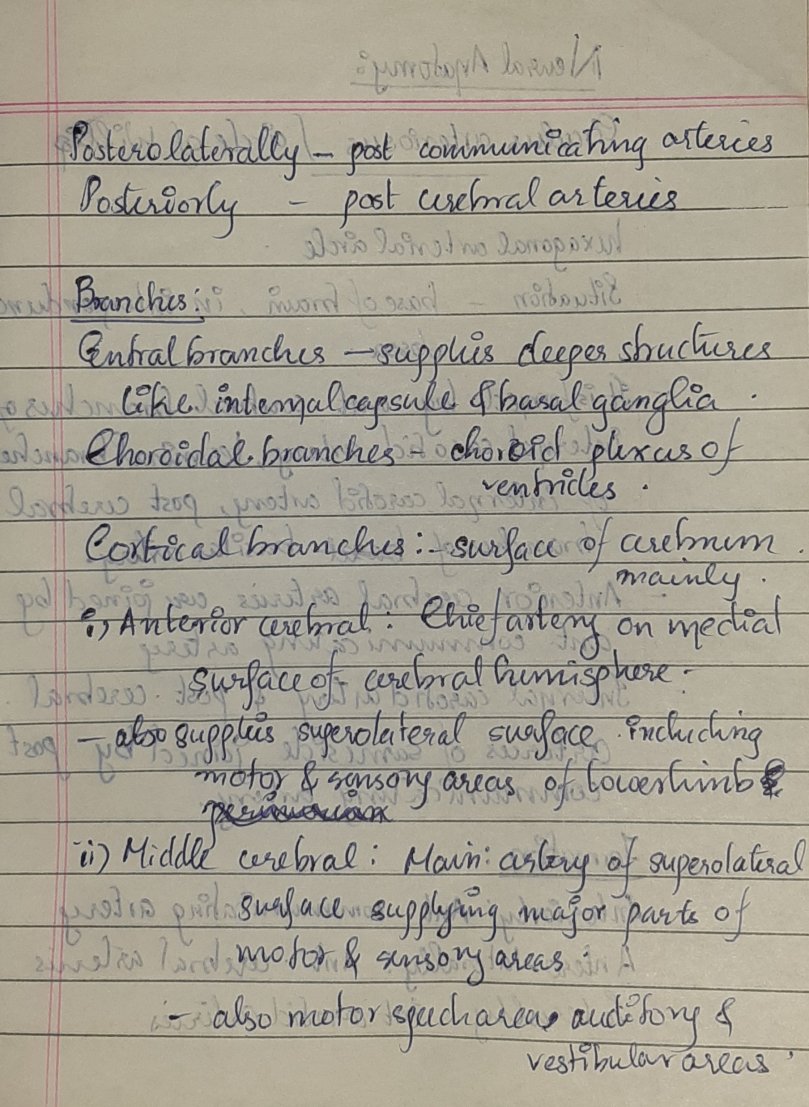 Posterolaterally – post communicating arteries
Posteriorly – post cerebral arteries
Branches:
Central branches – supplies deeper structures
like internal capsule & basal ganglia.
Choroidal branches – choroid plexus of
ventricles.
Cortical branches:- surface of cerebrum
mainly.
i) Anterior cerebral: Chief artery on medial
surface of cerebral hemisphere.
– also supplies superolateral surface including
motor & sensory areas of lowerlimb
ii) Middle cerebral: Main: artery of superolateral
surface supplying major parts of
motor & sensory areas.
– also motor speech area, auditory &
vestibular areas.